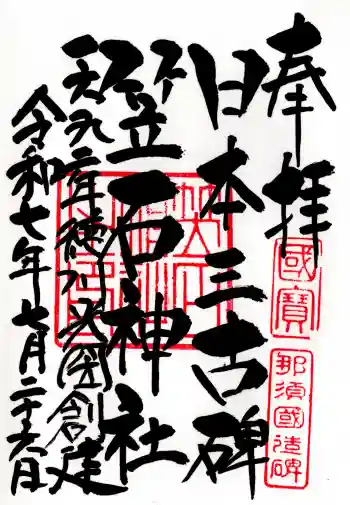 奉拝
國寶
那須國造碑
日本三古碑
笠石神社
天和二年徳川光圀創建
令和七年七月二十六日